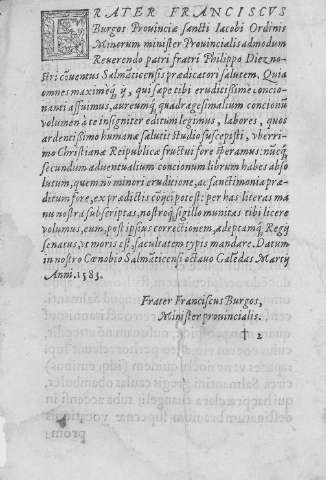 FRATER FRANCISCVS
Burgos Prouinciæ sancti Iacobi Ordinis
Minorum minister Prouincialis admodum
Reuerendo patri fratri Philippo Diez no-
stri cõuentus Salmãticensis prædicatori salutem. Quia
omnes maximeq́; ij, qui sæpe tibi eruditissime concio-
nanti assuimus, aureumq́; quadragesimalium concionũ
volumen à te insigniter editum legimus, labores, quos
ardentissimo humanæ salutis studio suscepisti, vberri-
mo Christianæ Reipublicæ fructui fore speramus: nũcq́;
secundum aduentualium concionum librum habes abso
lutum, quem nõ minori eruditione, ac sanctimonia præ-
ditum fore, ex prædictis cõijci potest: per has literas ma
nu nostra subscriptas, nostroq́; sigillo munitas tibi licere
volumus, eum, post ipsius correctionem, adeptamq́; Regij
senatus, vt moris est, facultatem typis mandare. Datum
in nostro Cœnobio Salmãticensi octauo Caledas Martij
Anni. 1583.
Frater Franciscus Burgos,
Minister prouincialis.
† 2